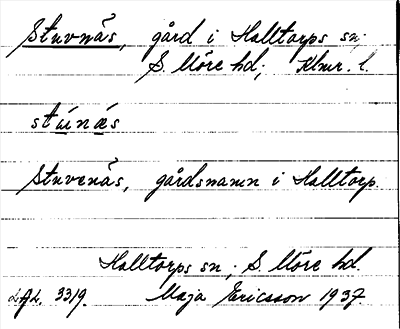 Stuvnäs, gård i Halltorps sn;
S. Möre hd; Klmr. l.
stúnæs
Stuvenäs, gårdsnamn i Halltorp.
Halltorps sn; S. Möre hd.
3319. Maja Ericsson 1937